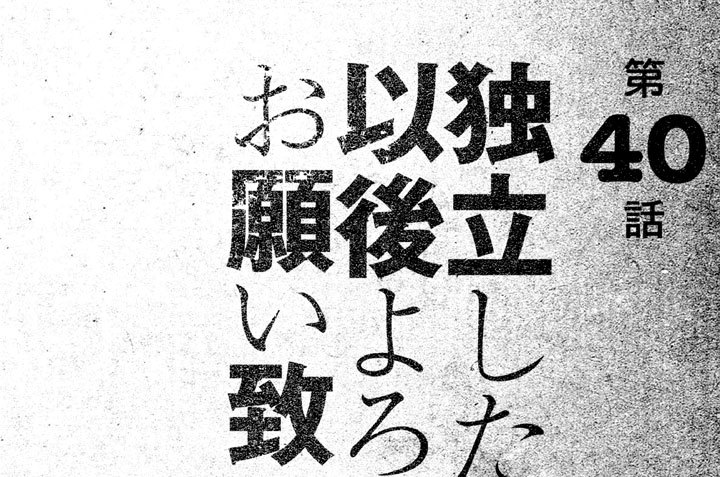 第40話
独立した
以後よろ
お願い致